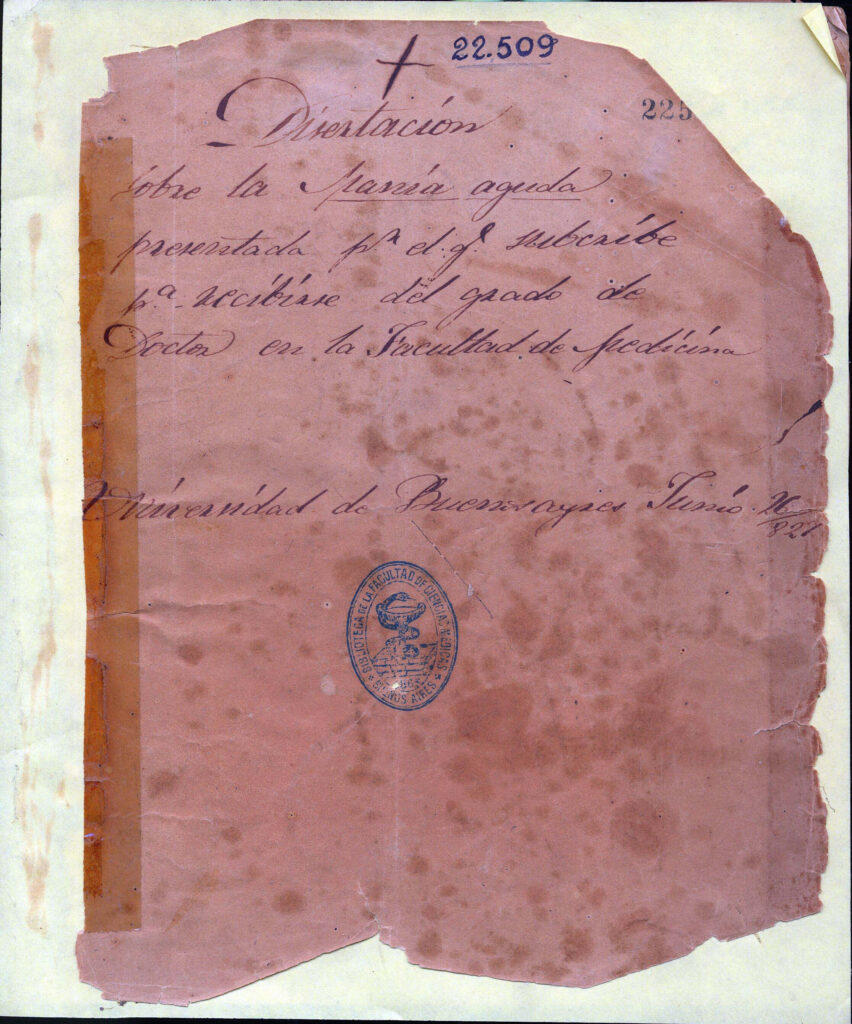 22.509
225
Disertación
sobre la Manía aguda
presentada pr el q.e subcribe
pa. recibirse del grado de
Doctor en la Facultad de Medicina
Universidad de Buenosayres Junio 26/827
BIBLIOTECA DE LA FACULTAD DE CIENCIAS MEDICAS
BUENOS AIRES